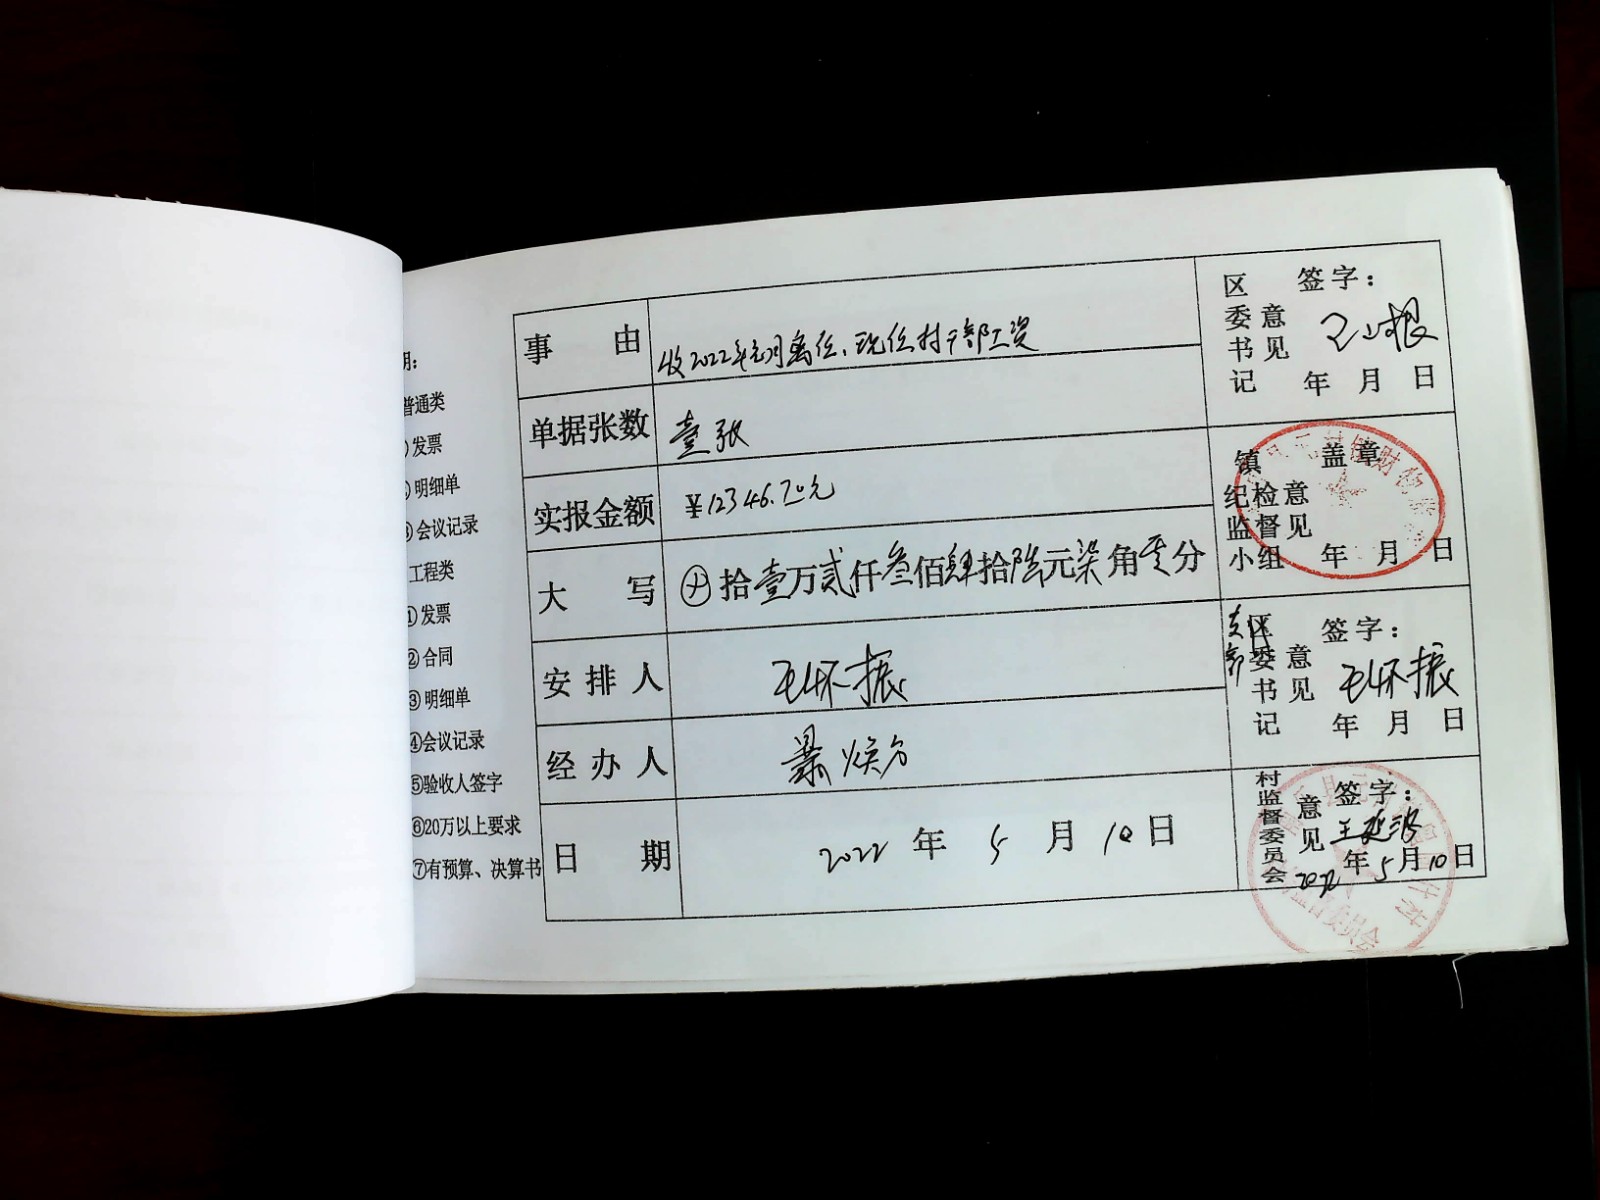 普通类
发票
明细单
会议记录
工程类
①发票
②合同
③明细单
④会议记录
⑤验收人签字
⑥20万以上要求
⑦有预算、决算书
事由 收2022年元月离任、现任村干部工资
单据张数 壹张
实报金额 ¥12346.70元
大写 拾壹万贰仟叁佰肆拾陆元柒角零分
安排人 王怀振
经办人
日期 2022年5月10日
区委书记意见 签字：
年 月 日
镇纪检监督小组意见 盖章
年 月 日
支部
区委书记意见 签字： 王怀振
年 月 日
村监督委员会意见 签字： 王延波
2022年5月10日